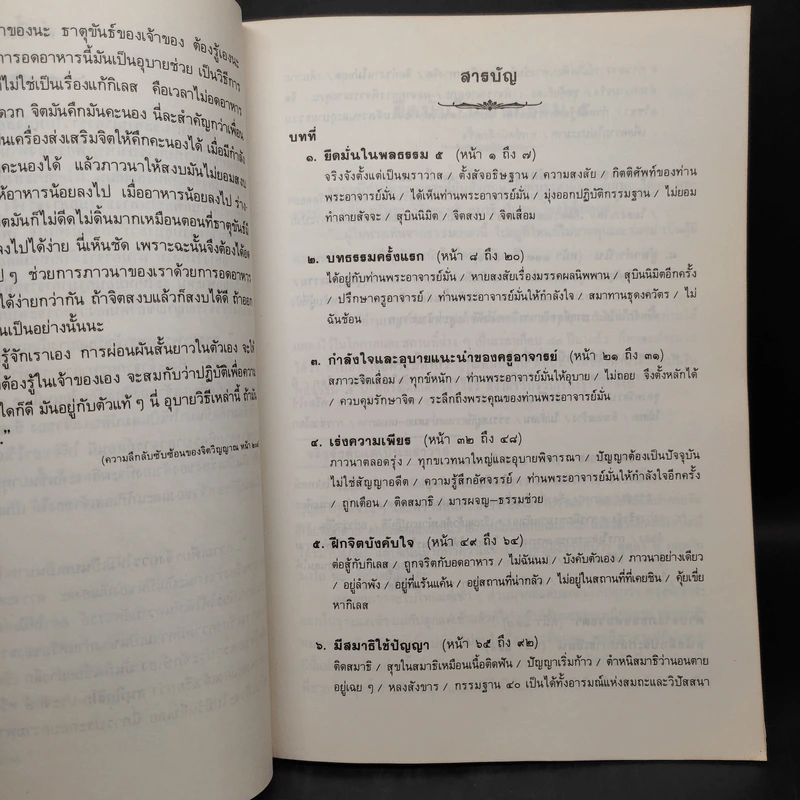 าของนะ ธาตุขันธ์ของเจ้าของ ต้องรู้เองนะ
การอดอาหารนี้มันเป็นอุบายช่วย เป็นวิธีการ
ไม่ใช่เป็นเรื่องแก้กิเลส คือเวลาไม่อดอาหาร
จิตมันคึกมันคะนอง นี่ละสำคัญกว่าเพื่อน
นเครื่องส่งเสริมจิตให้คึกคะนองได้ เมื่อมีกำลัง
คะนองได้ แล้วภาวนาให้สงบมันไม่ยอมสงบ
ห้อาหารน้อยลงไป เมื่ออาหารน้อยลงไป ร่าง-
จิตมันก็ไม่ดีดไม่ดิ้นมากเหมือนตอนที่ธาตุขันธ์มี
ลงไปได้ง่าย นี่เห็นชัด เพราะฉะนั้นจึงต้องได้อด
ป ๆ ช่วยการภาวนาของเราด้วยการอดอาหาร
ได้ง่ายกว่ากัน ถ้าจิตสงบแล้วก็สงบได้ดี ถ้าออก
นเป็นอย่างนั้นนะ
รู้จักเราเอง การผ่อนผันสั้นยาวในตัวเอง จะให้
าต้องรู้ในเจ้าของเอง จะสมกับว่าปฏิบัติเพื่อความ
ใดก็ดี มันอยู่กับตัวแท้ ๆ นี่ อุบายวิธีเหล่านี้
."
(ความลึกลับซับซ้อนของจิตวิญญาณ หน้า
สารบัญ
บทที่
๑. ยึดมั่นในพลธรรม ๕ (หน้า ๑ ถึง ๗)
จริงจังตั้งแต่เป็นฆราวาส / ตั้งสัจอธิษฐาน / ความสงสัย / กิตติศัพท์ของท่าน
พระอาจารย์มั่น / ได้เห็นท่านพระอาจารย์มั่น / มุ่งออกปฏิบัติกรรมฐาน / ไม่ยอม
ทำลายสัจจะ / สุบินนิมิต / จิตสงบ / จิตเสื่อม
๒. บทธรรมครั้งแรก (หน้า ๘ ถึง ๒๐)
ได้อยู่กับท่านพระอาจารย์มั่น / หายสงสัยเรื่องมรรคผลนิพพาน / สุบินนิมิตอีกครั้ง
/ ปรึกษาครูอาจารย์ / ท่านพระอาจารย์มั่นให้กำลังใจ / สมาทานธุดงควัตร / ไม่
ฉันซ้อน
๓. กำลังใจและอุบายแนะนำของครูอาจารย์ (หน้า ๒๑ ถึง ๓๑)
สภาวะจิตเสื่อม / ทุกข์หนัก / ท่านพระอาจารย์มั่นให้อุบาย / ไม่ถอย จึงตั้งหลักได้
/ ควบคุมรักษาจิต / ระลึกถึงพระคุณของท่านพระอาจารย์มั่น
๔. เร่งความเพียร (หน้า ๓๒ ถึง ๔๘)
ภาวนาตลอดรุ่ง / ทุกขเวทนาใหญ่และอุบายพิจารณา / ปัญญาต้องเป็นปัจจุบัน
ไม่ใช่สัญญาอดีต / ความรู้สึกอัศจรรย์ / ท่านพระอาจารย์มั่นให้กำลังใจอีกครั้ง
/ ถูกเตือน / ติดสมาธิ / มารผจญ–ธรรมช่วย
๕. ฝึกจิตบังคับใจ (หน้า ๔๙ ถึง ๖๔)
ต่อสู้กับกิเลส / ถูกจริตกับอดอาหาร / ไม่ฉันนม / บังคับตัวเอง / ภาวนาอย่างเดียว
/ อยู่ลำพัง / อยู่ที่แร้นแค้น / อยู่สถานที่น่ากลัว / ไม่อยู่ในสถานที่ที่เคยชิน / คุ้ยเขี่ย
หากิเลส
๖. มีสมาธิใช้ปัญญา (หน้า ๖๕ ถึง ๙๒)
ติดสมาธิ / สุขในสมาธิเหมือนเนื้อติดฟัน / ปัญญาเริ่มก้าว / ตำหนิสมาธิว่านอนตาย
อยู่เฉย ๆ / หลงสังขาร / กรรมฐาน ๔๐ เป็นได้ทั้งอารมณ์แห่งสมถะและวิปัสสนา